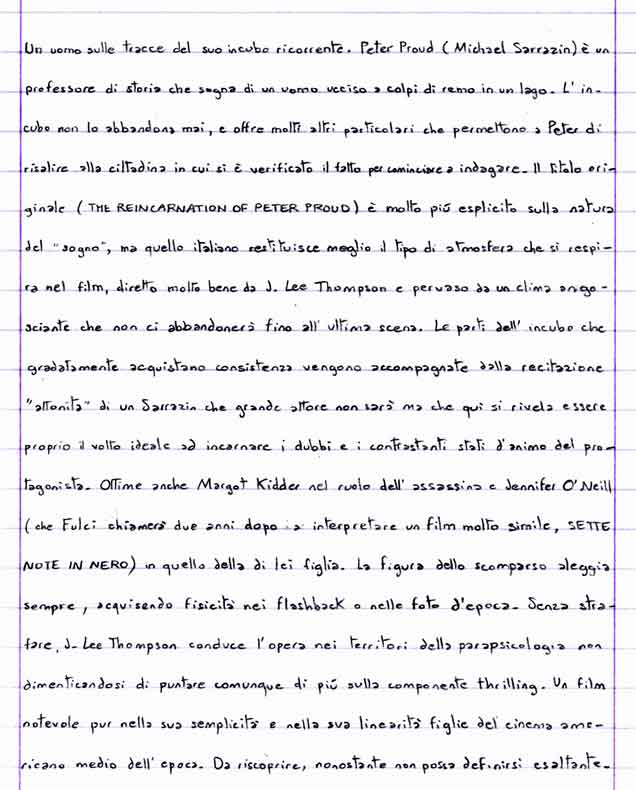 Un uomo sulle tracce del suo incubo ricorrente. Peter Proud (Michael Sarrazin) è un
professore di storia che sogna di un uomo ucciso a colpi di remo in un lago. L'in-
cubo non lo abbandona mai, e offre molti altri particolari che permettono a Peter di
risalire alla cittadina in cui si è verificato il fatto per cominciare a indagare. Il titolo ori-
ginale (THE REINCARNATION OF PETER PROUD) è molto più esplicito sulla natura
del "sogno", ma quello italiano restituisce meglio il tipo di atmosfera che si respi-
ra nel film, diretto molto bene da J. Lee Thompson e pervaso da un clima ango-
sciante che non ci abbandonerà fino all'ultima scena. Le parti dell'incubo che
gradatamente acquistano consistenza vengono accompagnate dalla recitazione
"attonita" di un Sarrazin che grande attore non sarà ma che qui si rivela essere
proprio il volto ideale ad incarnare i dubbi e i contrastanti stati d'animo del pro-
tagonista. Ottime anche Margot Kidder nel ruolo dell'assassina e Jennifer O'Neill
(che Fulci chiamerà due anni dopo a interpretare un film molto simile, SETTE
NOTE IN NERO) in quello della di lei figlia. La figura dello scomparso aleggia
sempre, acquisendo fisicità nei flashback o nelle foto d'epoca. Senza stra-
fare, J. Lee Thompson conduce l'opera nei territori della parapsicologia non
dimenticandosi di puntare comunque di più sulla componente thrilling. Un film
notevole pur nella sua semplicità e nella sua linearità figlie del cinema ame-
ricano medio dell'epoca. Da riscoprire, nonostante non possa definirsi esaltante.